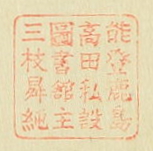 能登鹿島
高田私設
圖書館主
三枝昇純